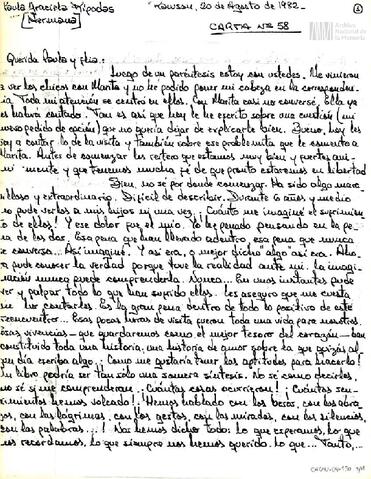 Paula Graciela Trípodas
(Hermana)
Rawson, 20 de Agosto de 1982.-
CARTA Nº 58
Archivo
Nacional de
la Memoria
Querida Paula y flia:
Luego de un paréntesis estoy con ustedes. Me vinieron
a ver los chicos con Marita y no he podido poner mi cabeza en la corresponden-
cia. Toda mi atención se centró en ellos. Con Marita casi no conversé. Ella ya
les habrá contado. Tan es así que hoy le he escrito sobre una cuestión (mi
nuevo pedido de opción) que no quería dejar de explicarle bien. Bueno, hoy les
voy a contar lo de la visita y también sobre ese problemita que le comento a
Marita. Antes de comenzar les reitero que estamos muy bien y fuertes aní-
mente y que tenemos mucha fé de que pronto estaremos en libertad
Bien, no sé por donde comenzar. Ha sido algo mara-
villoso y extraordinario. Difícil de describir. Durante 6 años y medio
no pude verlos a mis hijos ni una vez. ¡Cuánto me imaginé el sufrimien-
to de ellos! Y ese dolor fue el mío. Yo he penado pensando en la pe-
na de los dos. Esa pena que han llevado adentro, esa pena que nunca
se conversa... Así imaginé. Y así era, o mejor dicho algo así era. Aho-
ra pude conocer la verdad porque tuve la realidad ante mí. La imagi-
nación nunca puede comprenderla. Nunca... En unos instantes pude
ver y palpar todo lo que han sufrido ellos. Les aseguro que me cuesta
contarles. Es la gran pena dentro de todo lo positivo de este
reencuentro. Esas pocas horas de visita fueron toda una vida para nosotros.
Esas vivencias - que guardaremos como el mejor tesoro del corazón - han
constituído toda una historia, una historia de amor sobre la que quizás al-
gún día escriba algo. ¡Como me gustaría tener las aptitudes para hacerlo!
Un libro podría ser tan sólo una somera síntesis. No sé como decirles,
no sé si me comprenderán. ¡Cuántas cosas ocurrieron! ¡Cuántos sen-
timientos hemos volcado! ¡Hemos hablado con los besos, con los abra-
zos, con las lágrimas, con los gestos, con las miradas, con los silencios,
con las palabras...! Nos hemos dicho todo: lo que esperamos, lo que
nos recordamos, lo que siempre nos hemos querido. Lo que... Tanto,...